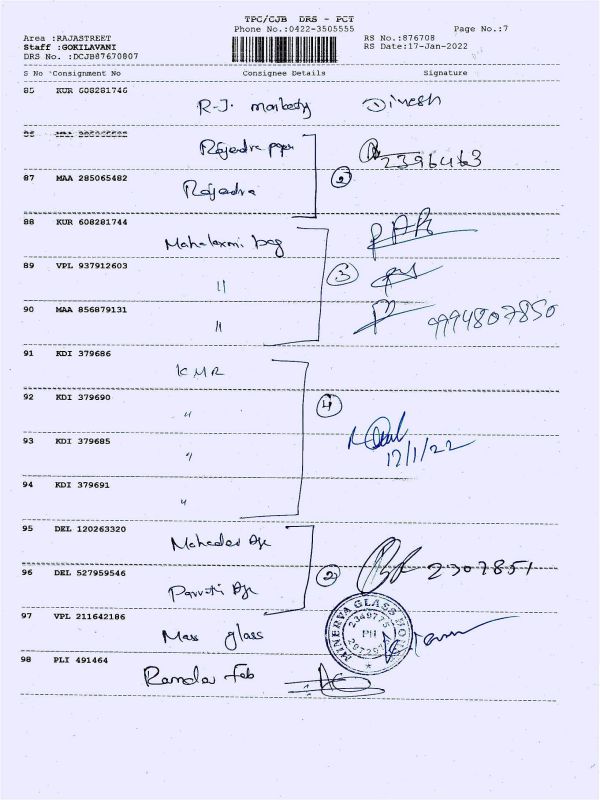 TPC/CJB DRS - PCT
Phone No.:0422-3505555
Page No.:7
Area :RAJASTREET
Staff :GOKILAVANI
DRS No. :DCJB87670807
RS No.:876708
RS Date:17-Jan-2022
S No Consignment No Consignee Details Signature
85 KUR 608281746 R-J- Dinesh
Rajendra
2396463
87 MAA 285065482 Rajendra
2
88 KUR 608281744 Mahalaxmi bag
89 VPL 937912603 "
3
90 MAA 856879131 "
9994807850
91 KDI 379686 KMR
92 KDI 379690 "
4
93 KDI 379685 "
17/1/22
94 KDI 379691 "
95 DEL 120263320
96 DEL 527959546
2
2307851
97 VPL 211642186 Mass glass
MINERVA GLASS
2349775
PH
98 PLI 491464 Ramdar Fab